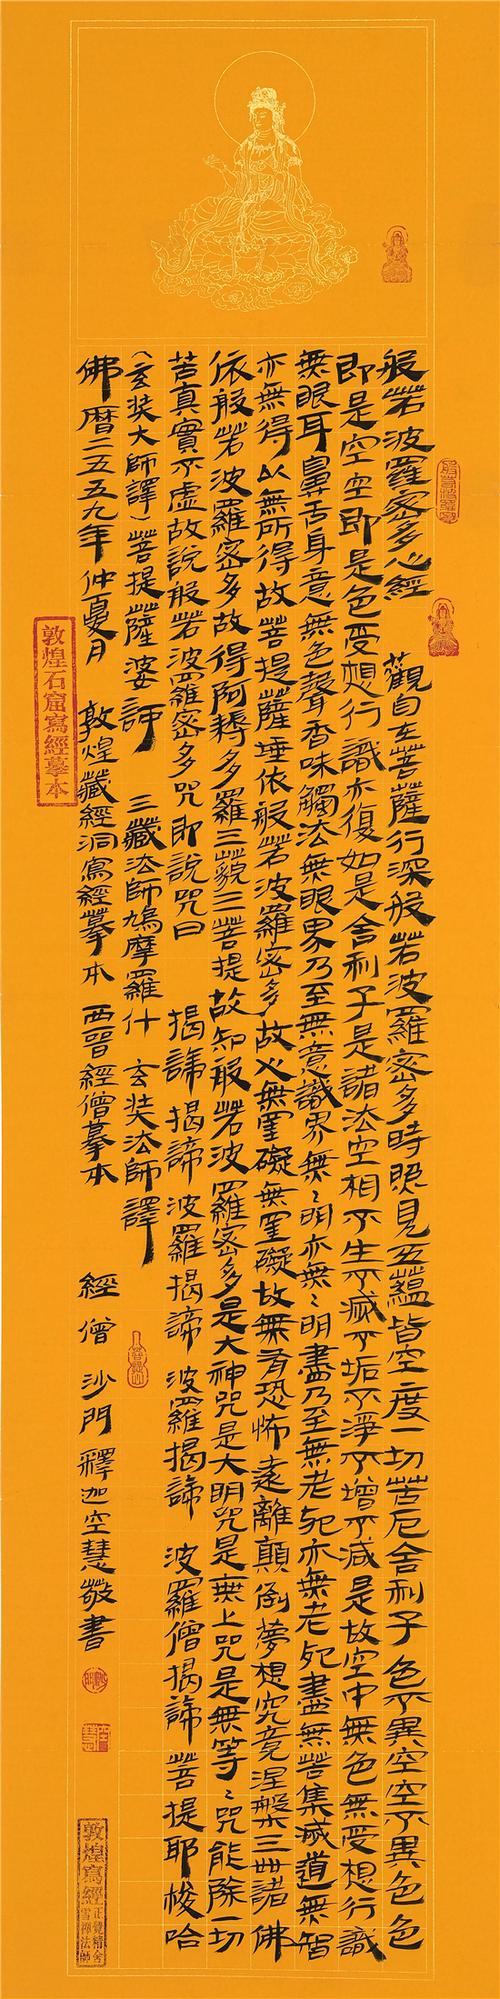 般若波羅密多心經 觀自在菩薩行深般若波羅密多時照見五蘊皆空度一切苦厄舍利子色不異空空不異色色
即是空空即是色受想行識亦復如是舍利子是諸法空相不生不滅不垢不淨不增不减是故空中無色無受想行識
無眼耳鼻舌身意無色聲香味觸法無眼界乃至無意識界無〻明亦無〻明盡乃至無老死亦無老死盡無苦集滅道無智
亦無得以無所得故菩提薩埵依般若波羅密多故心無罣礙無罣礙故無有恐怖遠離顛倒夢想究竟涅槃三世諸佛
依般若波羅密多故得阿耨多羅三藐三菩提故知般若波羅密多是大神咒是大明咒是無上咒是無等〻咒能除一切
苦真實不虛故說般若波羅密多咒即說咒曰 揭諦揭諦波羅揭諦 波羅揭諦 波羅僧揭諦菩提耶梭哈
(玄奘大師譯)菩提薩婆訶 三藏法師鳩摩羅什 玄奘法師譯
佛曆二五五九年仲夏月 敦煌藏經洞寫經摹本 西晉經僧摹本 經僧 沙門 釋迦空慧敬書
敦煌石窟寫經摹本
敦煌寫經
正覺精舍
雪禪法師